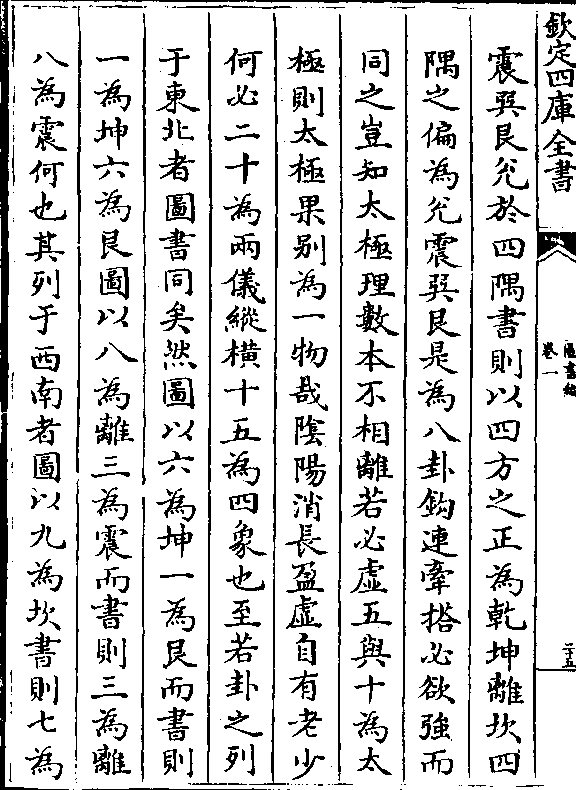 欽定四庫全書
圖書編
卷一
二十五
震巽艮兊於四隅書則以四方之正為乾坤離坎四
隅之偏為兊震巽艮是為八卦鈎連牽搭必欲強而
同之豈知太極理數本不相離若必虚五與十為太
極則太極果别為一物哉陰陽消長盈虚自有老少
何必二十為兩儀縱横十五為四象也至若卦之列
于東北者圖書同矣然圖以六為坤一為艮而書則
一為坤六為艮圖以八為離三為震而書則三為離
八為震何也其列于西南者圖以九為坎書則七為